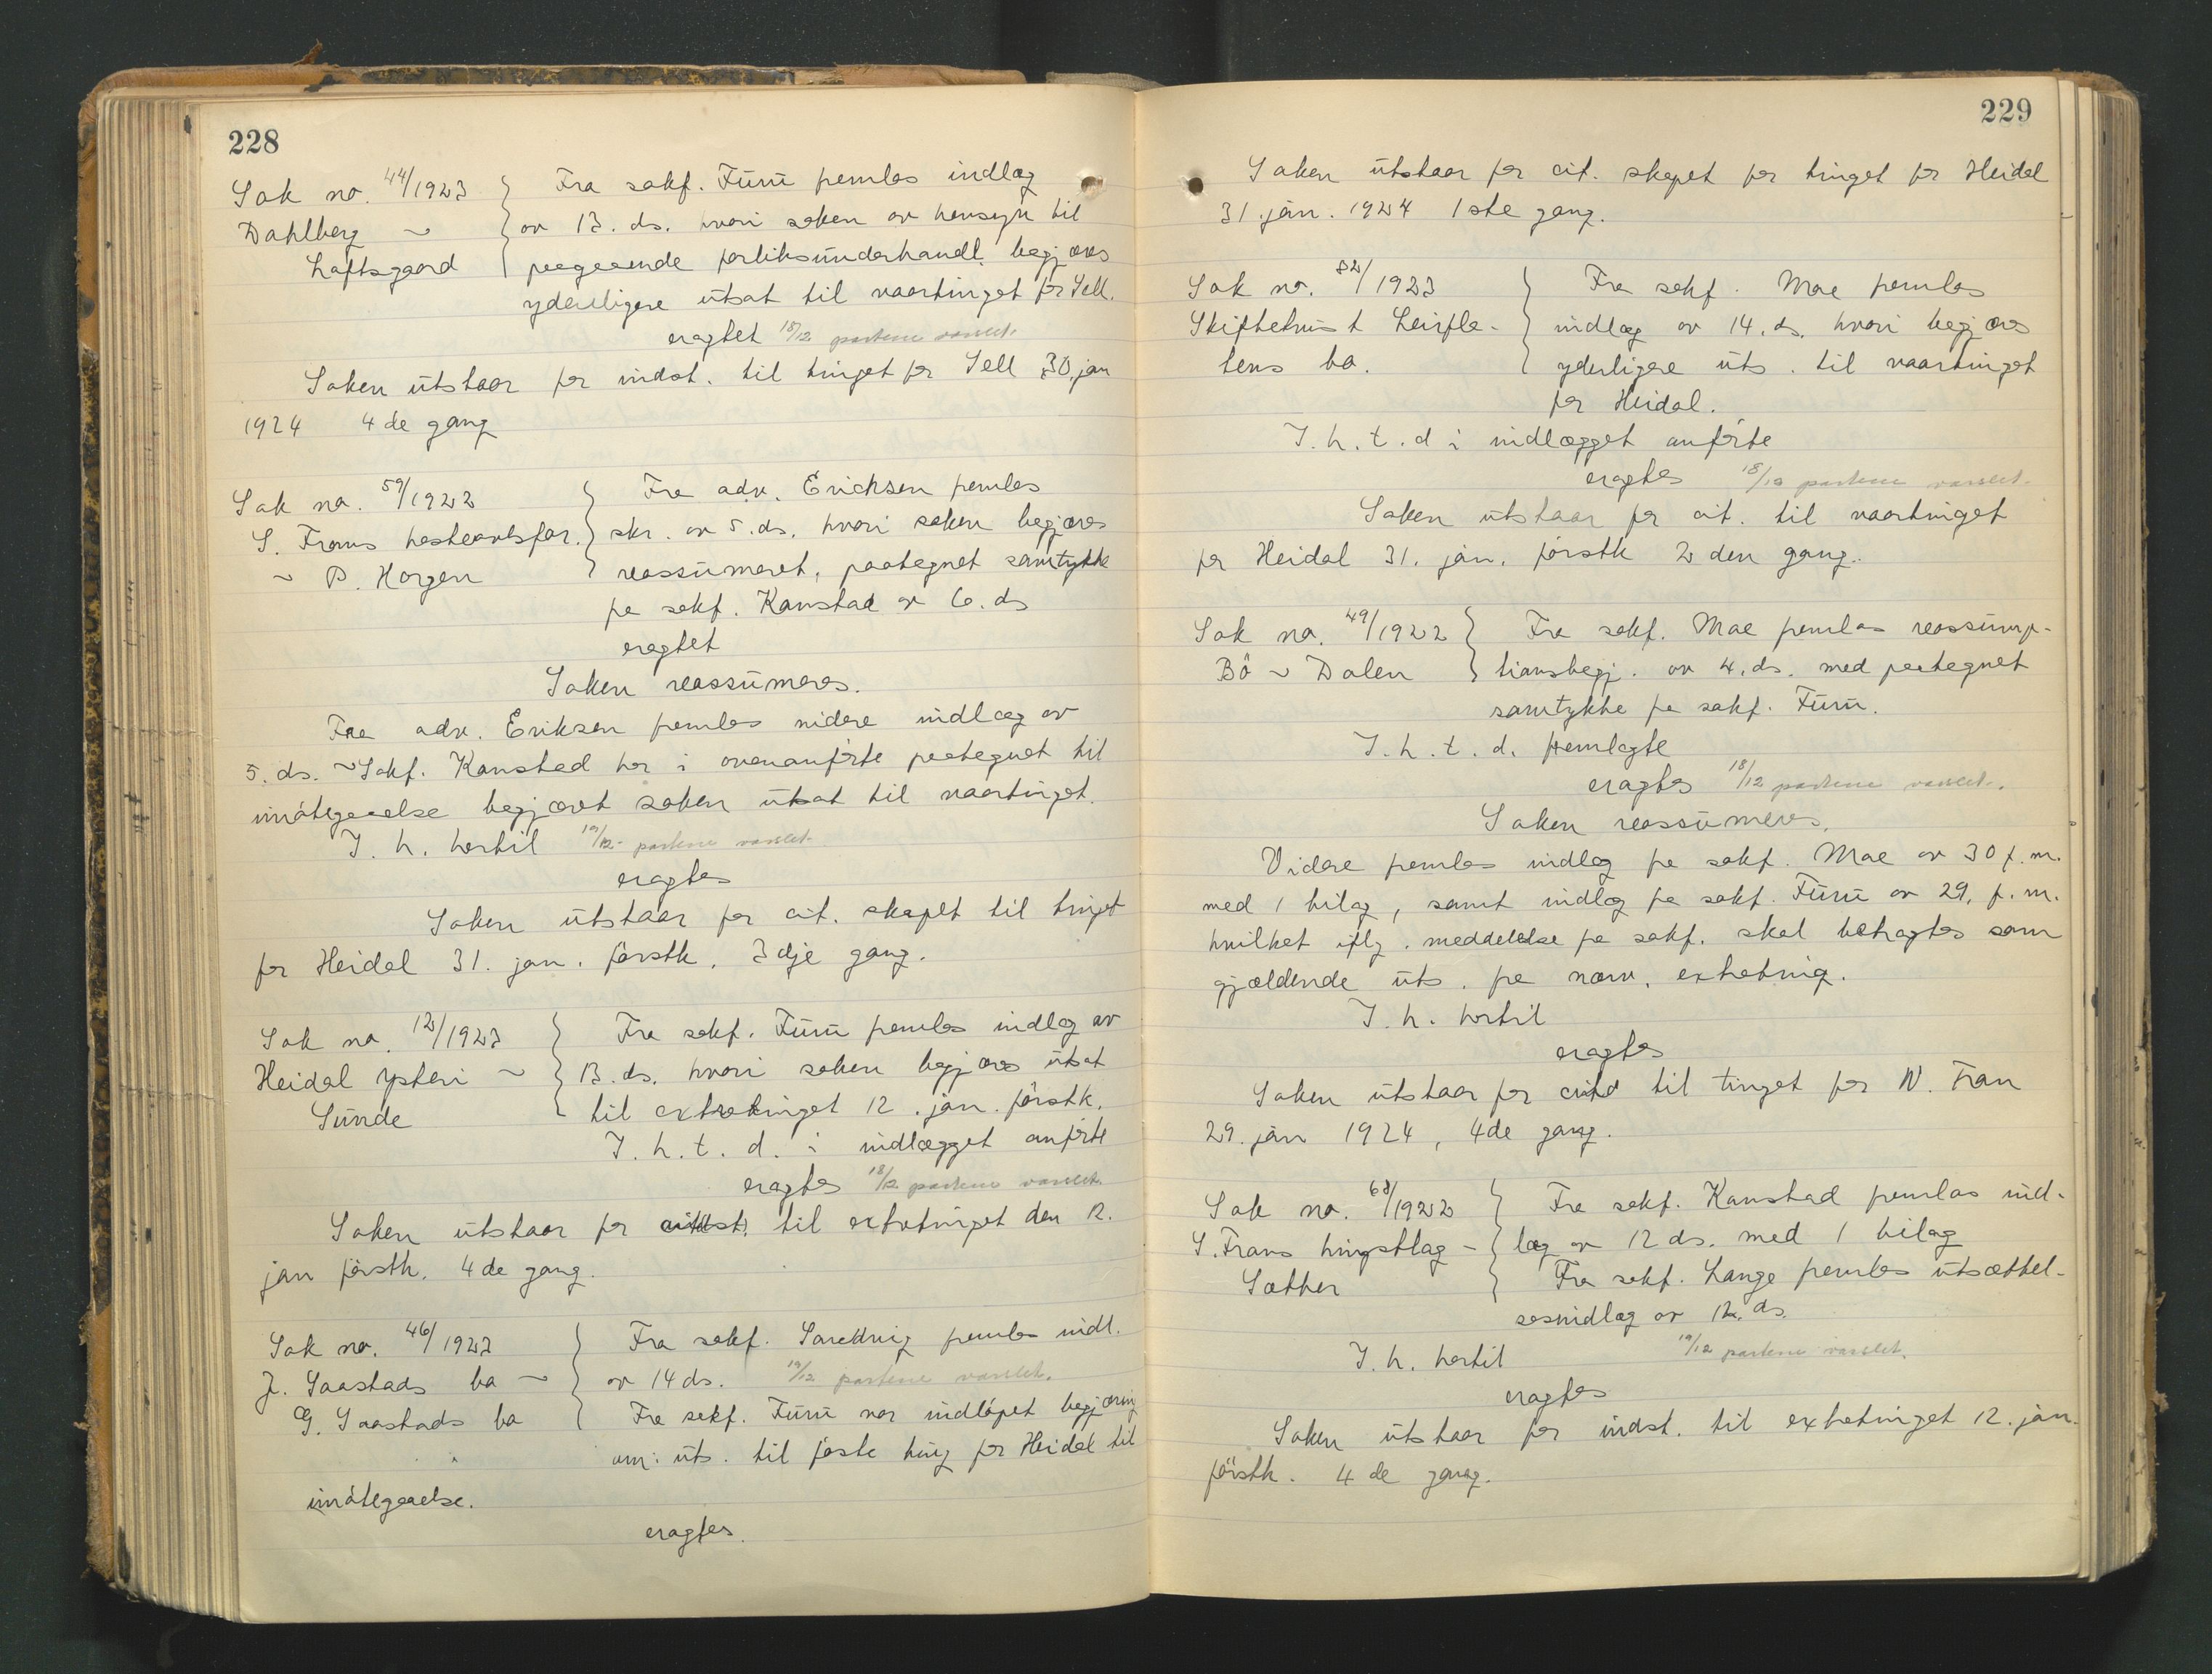 228
Sak no. 44/1923 Fra sakf. Furu fremlas indlæg
Dahlberg ~ av 13. ds. hvori saken av hensyn til
Laftsgaard paagaaende forliksunderhandl. begjæres
yderligere utsat til vaartinget for Sell.
eragtet 18/12 partene varslet.
Saken utstaar for indst. til tinget for Sell 30. jan
1924 4de gang
Sak no. 59/1922 Fra adv. Erichsen fremlas
S. Frons hesteavlsfor. skr. av 5. ds. hvori saken begjæres
~ P. Horgen reassumeret, paategnet samtykke
fra sakf. Kanstad av 6. ds
eragtet
Saken reassumeres.
Fra adv. Eriksen fremlas videre indlæg av
5. ds. ~ Sakf. Kanstad har i ovenanførte paategnet til
imøtegaaelse begjæret saken utsat til vaartinget.
I. h. hertil 19/12 partene varslet.
eragtes
Saken utstaar for cit. skapet til tinget
for Heidal 31. jan. førstk. 3dje gang.
Sak no. 12/1923 Fra sakf. Furu fremlas indlæg av
Heidal ysteri ~ 13. ds. hvori saken begjæres utsat
Sunde til extratinget 12. jan. førstk.
I. h. t. d. i indlægget anførte
eragtes 18/12 partene varslet.
Saken utstaar for til extratinget den 12.
jan førstk. 4de gang.
Sak no. 46/1923 Fra sakf. fremlas indl.
J. Saastads bo ~ av 14 ds. 19/12 partene varslet.
G. Saastads bo Fra sakf. Furu var indløpet begjæring
om uts. til første ting for Heidal til
imøtegaaelse.
eragtes.
229
Saken utstaar for cit. skapet for tinget for Heidal
31. jan. 1924 1ste gang.
Sak no. 82/1923 Fra sakf. Moe fremlas
Skiftetvist Leirfle- indlæg av 14. ds. hvori begjæres
tens bo. yderligere uts. til vaartinget
for Heidal.
I. h. t. d i indlægget anførte
eragtes 18/12 partene varslet.
Saken utstaar for cit. til vaartinget
for Heidal 31. jan. førstk 2den gang.
Sak no. 49/1922 Fra sakf. Moe fremlas reassump-
Bö ~ Dalen tionsbegj. av 4. ds. med paategnet
samtykke fra sakf. Furu.
I. h. t. d. fremlagte
eragtes 18/12 partene varslet.
Saken reassumeres.
Videre fremlas indlæg fra sakf. Moe av 30 f. m.
med 1 bilag, samt indlæg fra sakf. Furu av 29. f. m.
hvilket iflg. meddelelse fra sakf. skal betragtes som
gjældende uts. fra nærv. extrating.
I. h. hertil
eragtes
Saken utstaar for til tinget for N. Fron
29. jan 1924, 4de gang.
Sak no. 68/1922 Fra sakf. Kanstad fremlas ind-
S. Frons hingstlag - læg av 12 ds. med 1 bilag
Sæther Fra sakf. Lange fremlas utsættel-
sesindlæg av 12. ds.
I. h. hertil 19/12 partene varslet.
eragtes
Saken utstaar for indst. til extratinget 12. jan.
førstk. 4de gang.